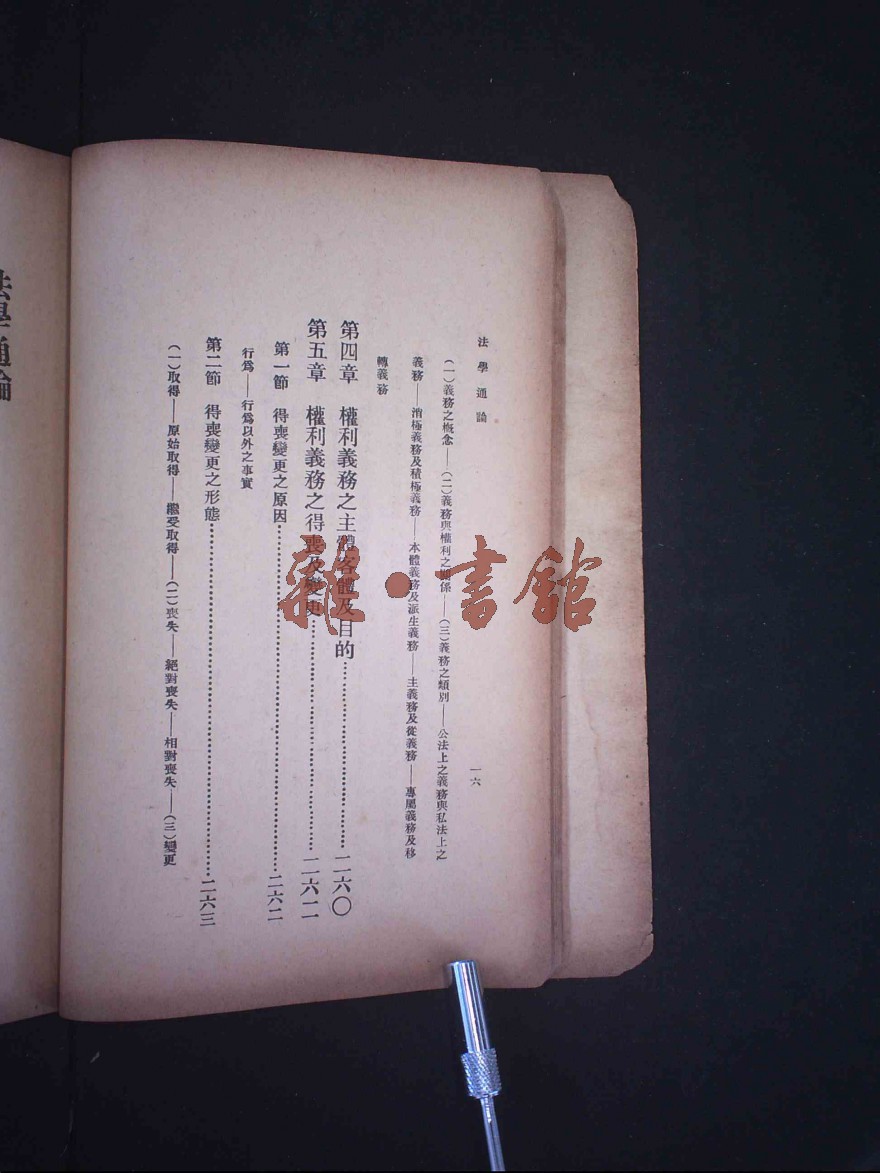 法學通論
一六
(一)義務之概念——(二)義務與權利之關係——(三)義務之類別——公法上之義務與私法上之
義務——消極義務及積極義務——本體義務及派生義務——主義務及從義務——專屬義務及移
轉義務
第四章 權利義務之主體客體及目的……二六〇
第五章 權利義務之得喪及變更……二六二
第一節 得喪變更之原因……二六二
行爲——行爲以外之事實
第二節 得喪變更之形態……二六三
(一)取得——原始取得——繼受取得——(二)喪失——絕對喪失——相對喪失——(三)變更
法學通論
雜·書館